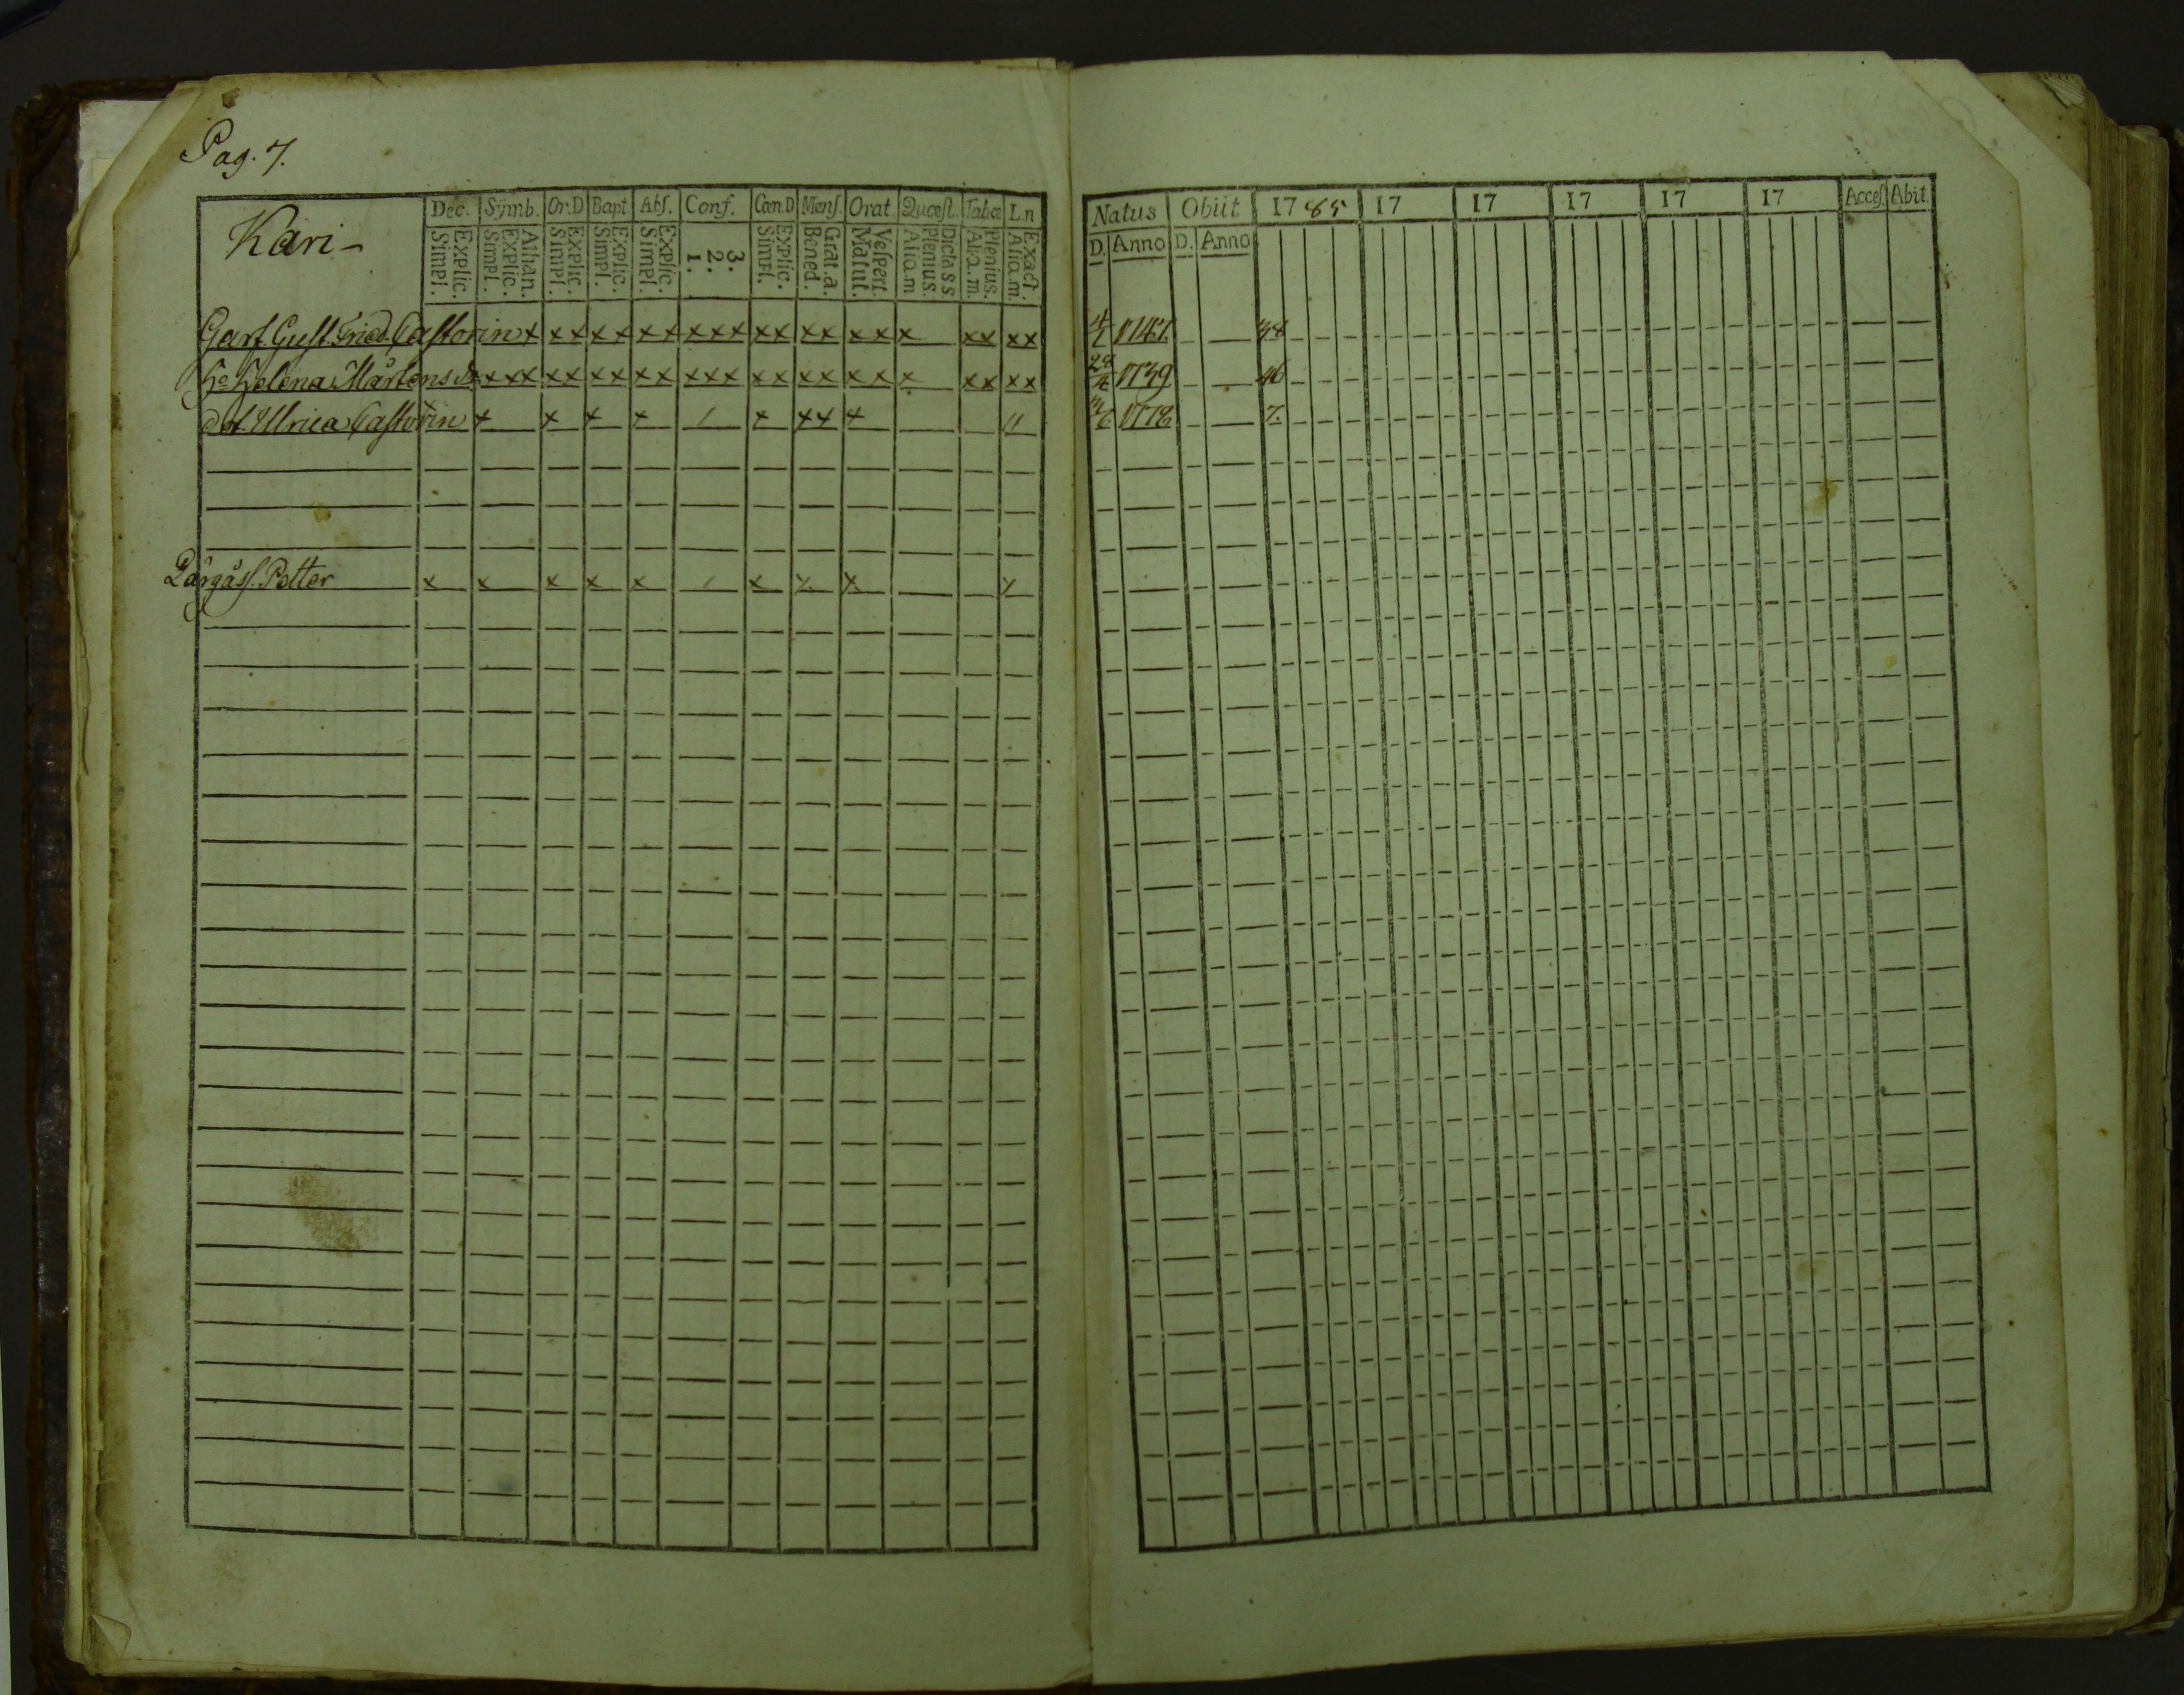 Pag. 7.
Kari-
Dec. Symb. Or.D Bapt. Abs. Conf. Cœn.D Mens. Orat. Quæst. Tabæ L.n
Simpl. Explic. Simpl. Explic. Athan. Simpl. Explic. Simpl. Explic. Simpl. Explic. 1. 2. 3. Simpl. Explic. Bened. Grat.a. Matut. Vespert. Aliq.m Plenius. Dicta S S. Aliq.m. Plenius. Aliq.m. Exact.
Gust. Fried. Castorin x x x x x x x x x x x x x x x x x x x x x
Helena Mårtens dr x x x x x x x x x x x x x x x x x x x x x
dot. Ulrica Castorin x x x x / x x x x //
Petter x x x x x / x x x x
Natus Obiit 1785 17 17 17 17 17 Acces. Abit.
D. Anno D. Anno
1747. 38
28/4 1739 46
1778 7.